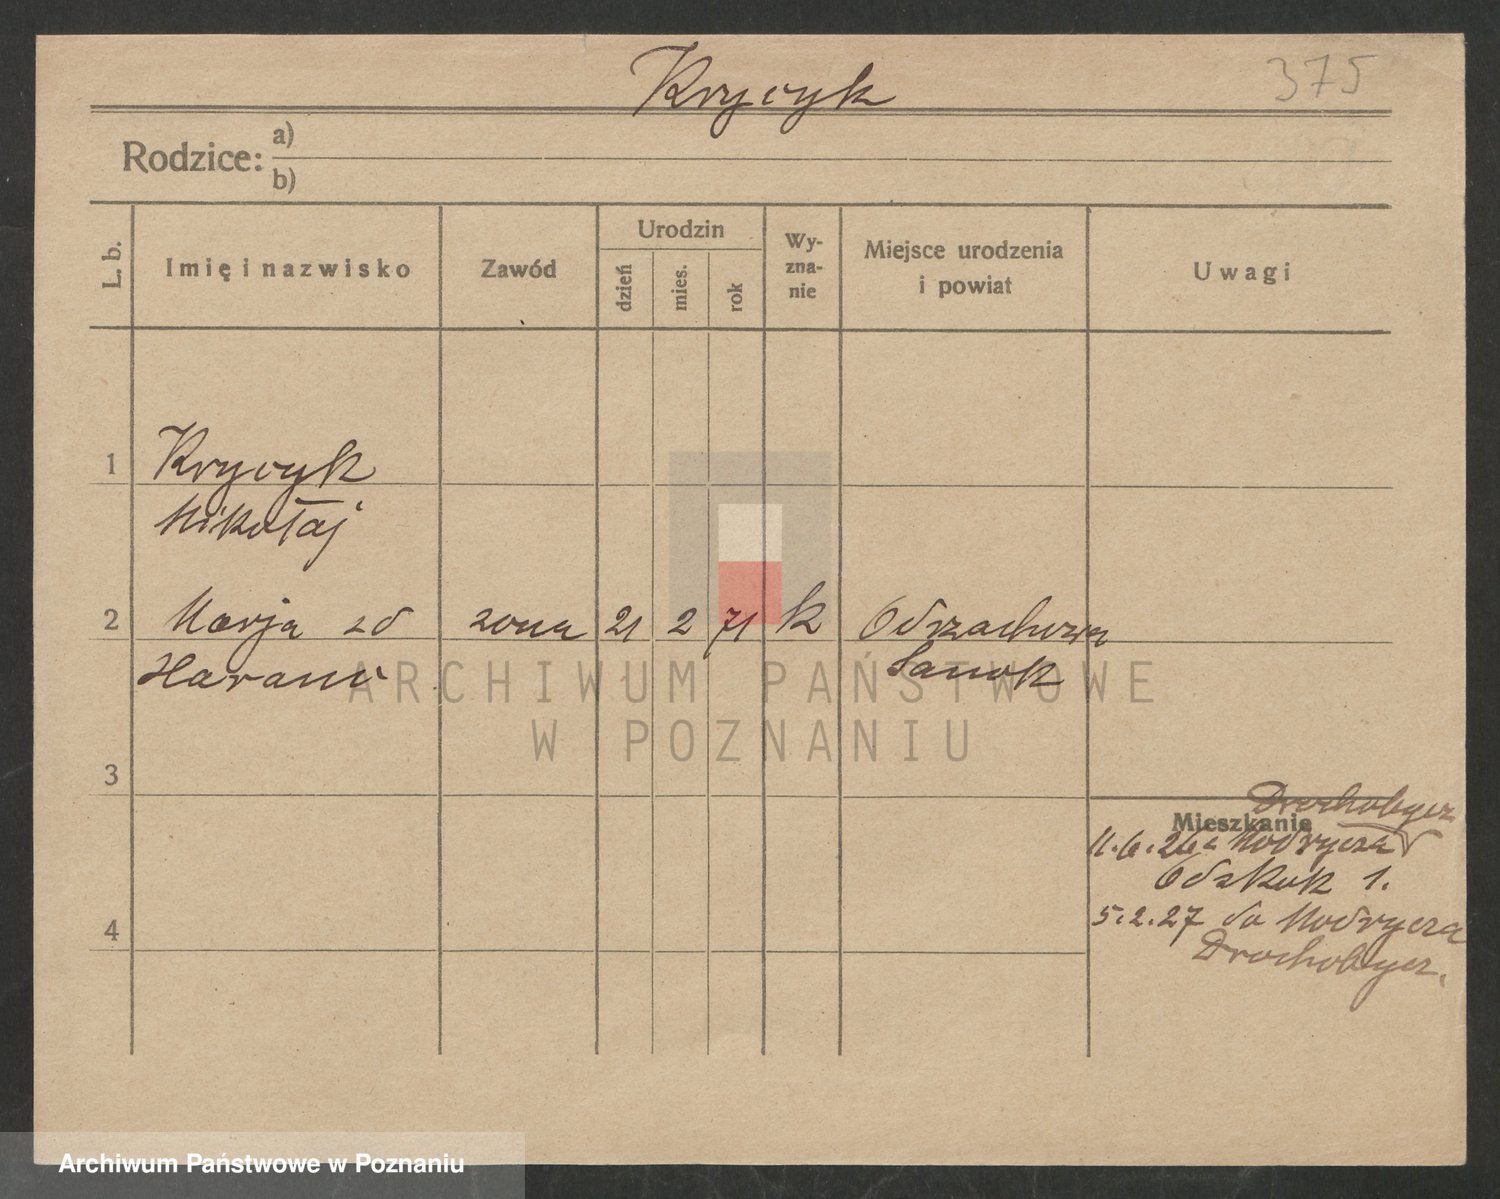 Krycyk
375
Rodzice: a)
b)
L. b.
Imię i nazwisko
Zawód
Urodzin
dzień
mies.
rok
Wy-
zna-
nie
Miejsce urodzenia
i powiat
Uwagi
1 Krycyk
Mikołaj
2 Marja zd żona 21 2 71 k
Sanok
ARCHIWUM PAŃSTWOWE
W POZNANIU
3
Drochobycz
Mieszkanie
11.6.26 z Modrycza
Odskok 1.
5.2.27 do Modrycza
4
Drochobycz.
Archiwum Państwowe w Poznaniu